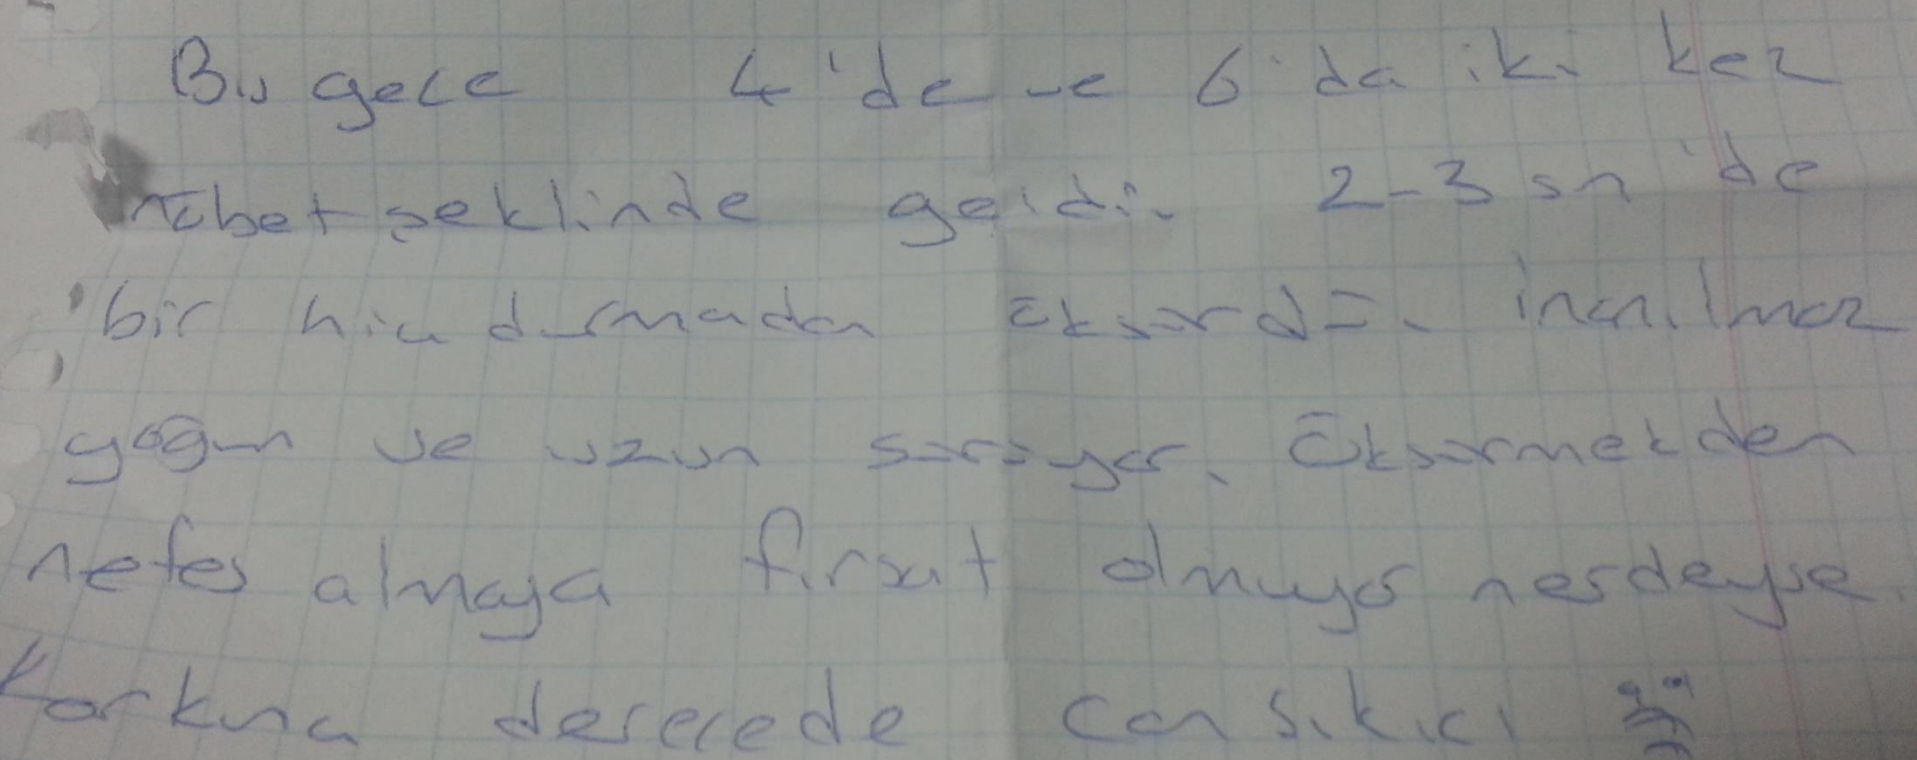 Bu gece 4'de ve 6'da iki kez
nöbet şeklinde geldi. 2-3 sn'de
bir hiç durmadan öksürdü. inanılmaz
yoğun ve uzun sürüyor. Öksürmekden
nefes almaya fırsat olmuyor nerdeyse.
Korkunç derecede can sıkıcı